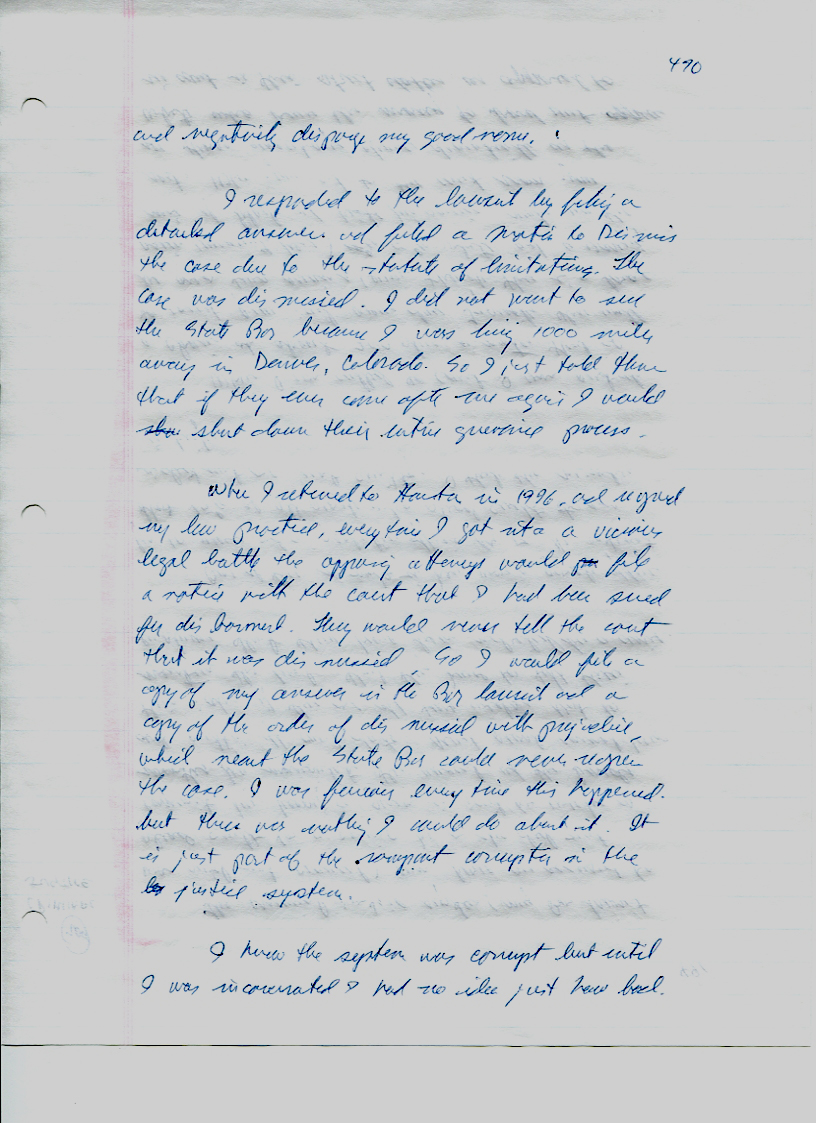 490
and negatively disparge my good name.
I responded to the lawsuit by filing a
detailed answer and filed a Motion to Dismiss
the case due to the statute of limitations. The
case was dismissed. I did not want to sue
the State Bar because I was living 1000 miles
away in Denver, Colorado. So I just told them
that if they ever come after me again I would
shut down their entire grievance process.
When I returned to Houston in 1996, and resumed
my law practice, everytime I got into a vicious
legal battle the opposing attorneys would file
a notice with the court that I had been sued
for disbarment. They would never tell the court
that it was dismissed. So I would file a
copy of my answer in the Bar lawsuit and a
copy of the order of dismissal with prejudice,
which meant the State Bar could never reopen
the case. I was furious every time this happened.
but there was nothing I could do about it. It
is just part of the rampant corruption in the
justice system.
I knew the system was corrupt but until
I was incarcerated I had no idea just how bad.